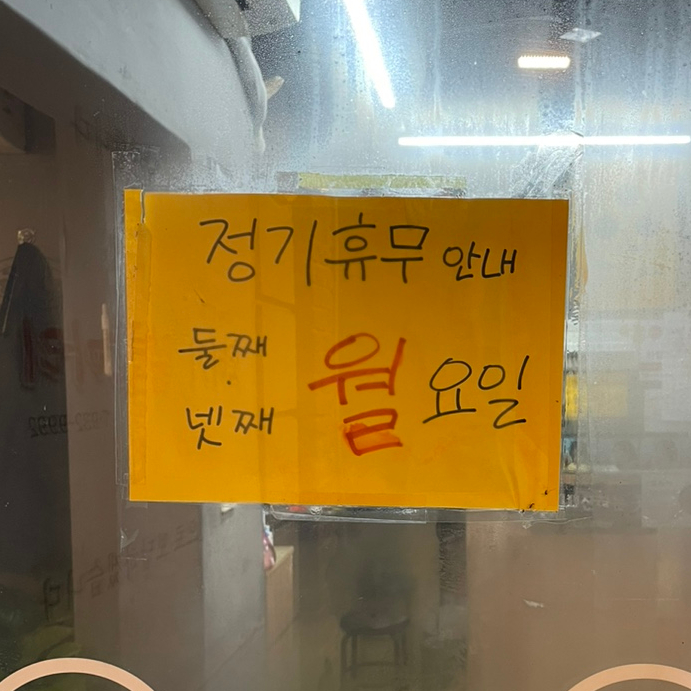 정기휴무 안내
둘째
·
넷째
월요일